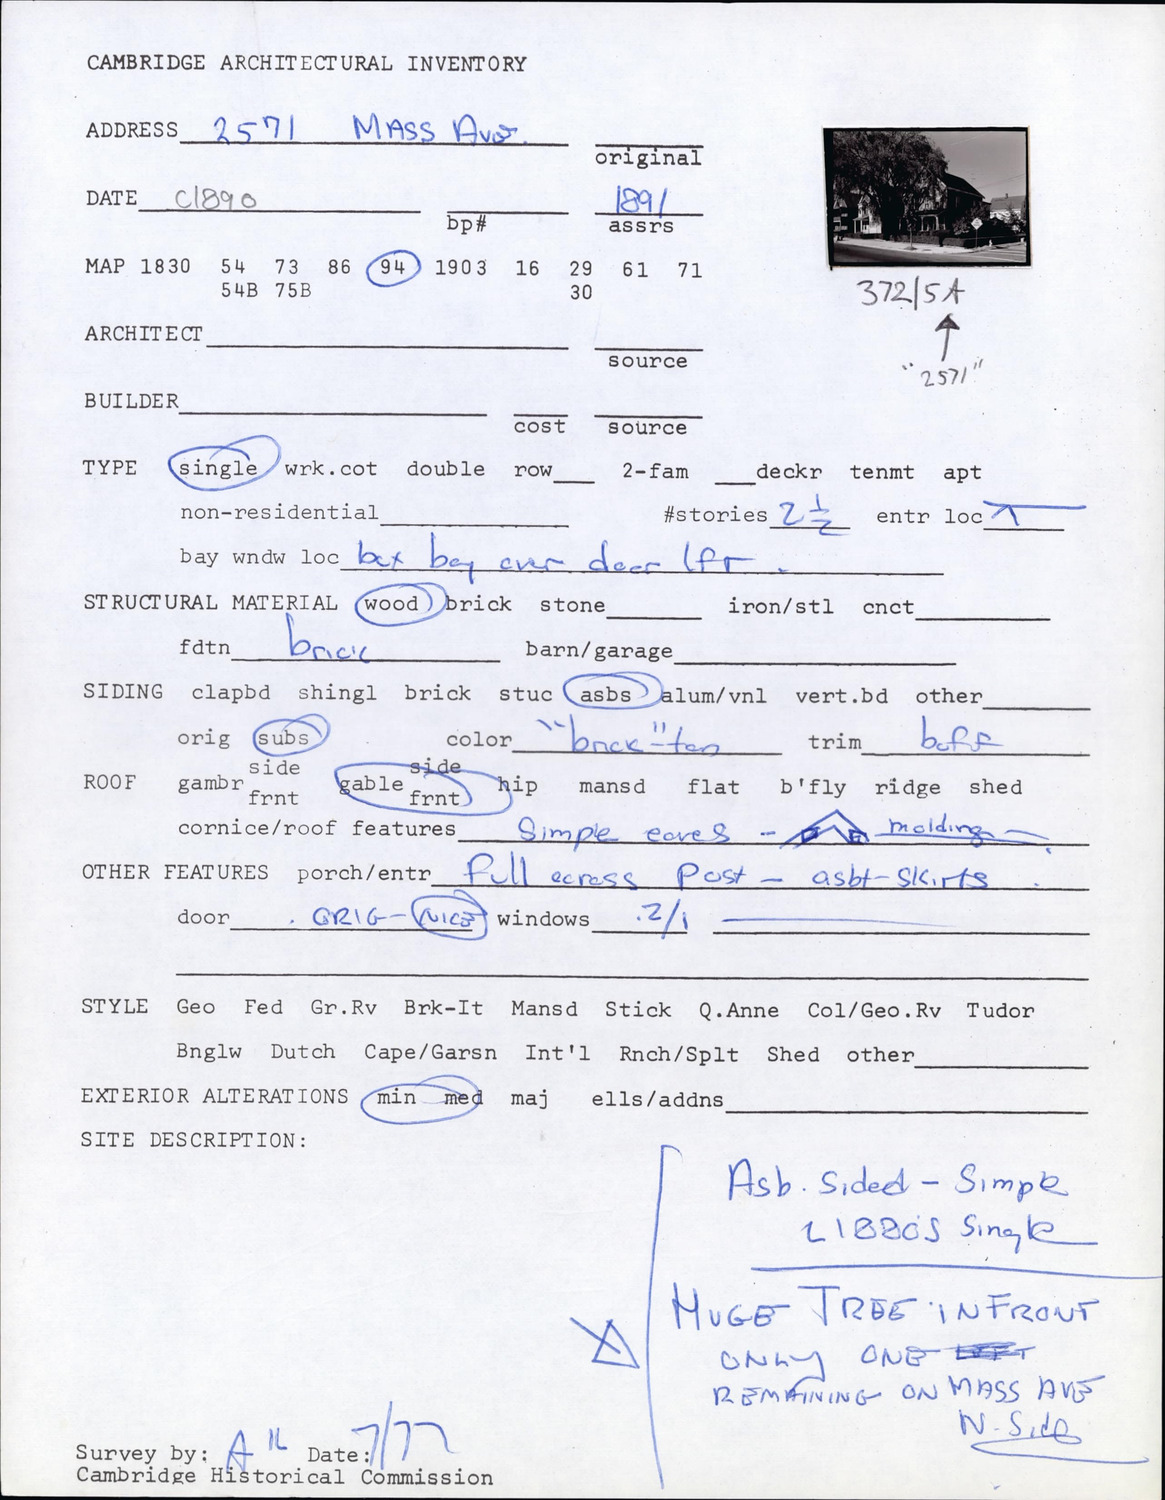 CAMBRIDGE ARCHITECTURAL INVENTORY
ADDRESS 2571 MASS Ave.
original
DATE c1890 1891
bp# assrs
MAP 1830 54 73 86 94 1903 16 29 61 71
54B 75B 30
372/5A
"2571"
ARCHITECT
source
BUILDER
cost source
TYPE single wrk.cot double row 2-fam deckr tenmt apt
non-residential #stories 2 1/2 entr loc
bay wndw loc box bay over door lft.
STRUCTURAL MATERIAL wood brick stone iron/stl cnct
fdtn brick barn/garage
SIDING clapbd shingl brick stuc asbs alum/vnl vert.bd other
orig subs color "brick"-tan trim buff
side side
ROOF gambr gable hip mansd flat b'fly ridge shed
frnt frnt
cornice/roof features Simple eaves - molding
OTHER FEATURES porch/entr full across Post - asbt-skirts
door ORIG-NICE windows 2/1
STYLE Geo Fed Gr.Rv Brk-It Mansd Stick Q.Anne Col/Geo.Rv Tudor
Bnglw Dutch Cape/Garsn Int'l Rnch/Splt Shed other
EXTERIOR ALTERATIONS min med maj ells/addns
SITE DESCRIPTION:
Asb. Sided - Simple
L1880s Single
HUGE TREE IN FRONT
ONLY ONE
REMAINING ON MASS AVE
N. Side
Survey by: Date: 7/77
Cambridge Historical Commission